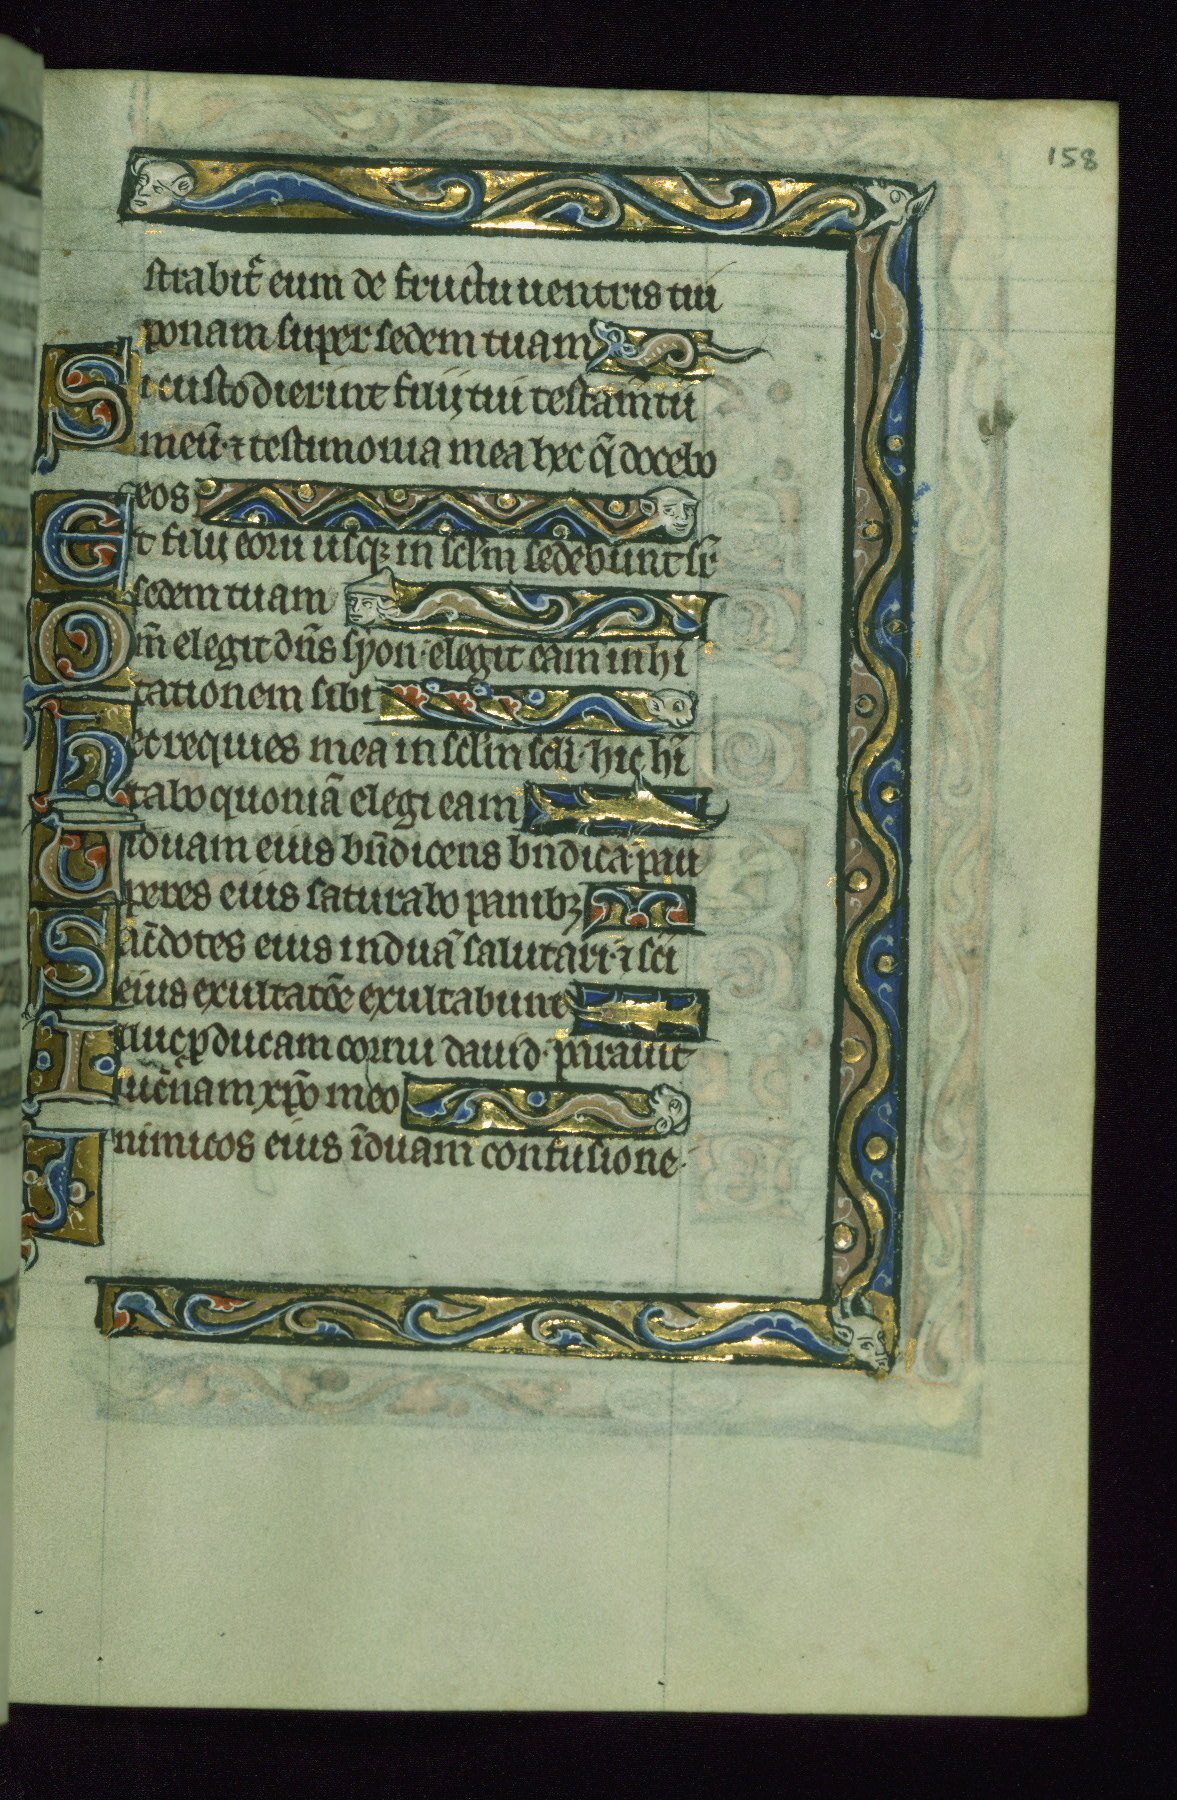 158
strabit᷑ eum de fructu uentris tui
ponam super sedem tuam
Si custodierint filij tui testam̄tū
meū ⁊ testimonia mea hec q̄ docebo
eos
Et filij eorū usq; in sclm̄ sedebunt sr̄
sedem tuam
Qm̄ elegit dn̄s syon·elegit eam in hi
tationem sibi
Hec requies mea in sclm̄ scli·hic hī
tabo quoniā elegi eam
Uiduam eius bn̄dicens bn̄dicā·pau
peres eius saturabo panibꝫ
Sac̄dotes eius induā salutari·⁊ sci
eius exultatōe exultabunt
Illuc ꝓducam cornu dauid·parauit
luc̄nam xp̄o meo
Inimicos eius īduam confusione·